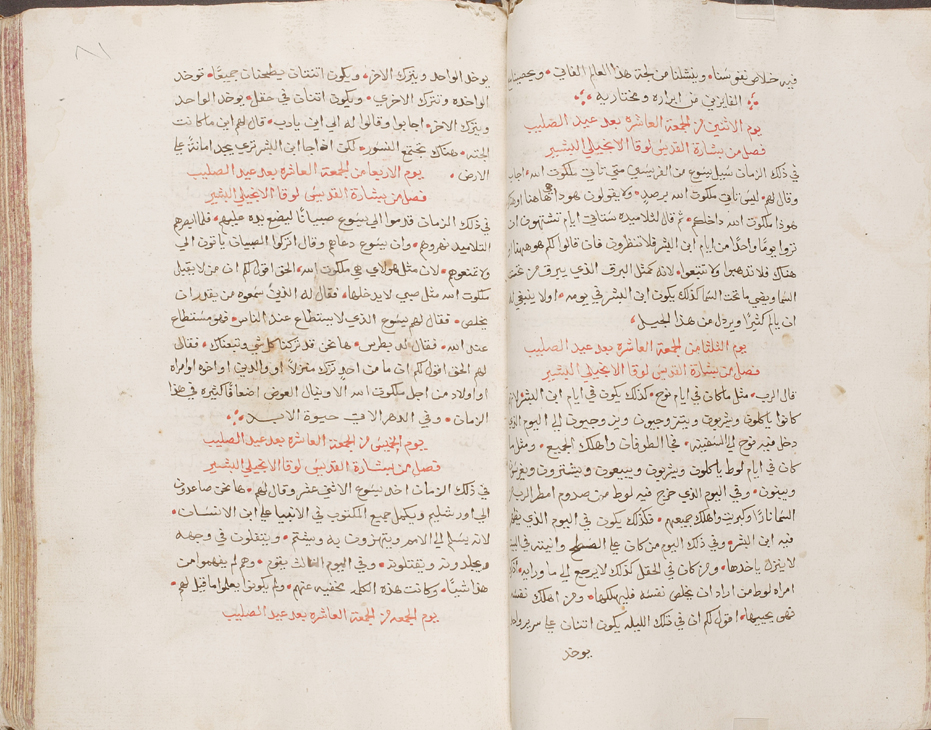 فيه خلاص نفوسنا وينشلنا من لجة هذا العالم الفاني ويحصينا
الفايزين من ابراره ومختاريه
يوم الاثنين من الجمعة العاشره بعد عيد الصليب
فصل من بشارة القديس لوقا الانجيلي البشير
في ذلك الزمان سيل يسوع من الفريسين متي تاتي ملكوت الله اجاب
وقال لهم ليس تاتي ملكوت الله برصد ولا يقولون هوذا هي هاهنا او هناك
هوذا ملكوت الله داخلكم ثم قال لتلاميذه ستاتي ايام تشتهون ان
تروا يومًا واحدًا من ايام ابن البشر فلا تنظرون فان قالوا لكم هوذا هو هاهنا او
هناك فلا تذهبوا ولا تتبعوا لانه كمثل البرق الذي يبرق من تحت
السما ويضي ما تحت السما كذلك يكون ابن البشر في يومه اولا ينبغي له
ان يالم كثيرًا ويرذل من هذا الجيل
يوم الثلثا من الجمعة العاشره بعد عيد الصليب
فصل من بشارة القديس لوقا الانجيلي البشير
قال الرب مثل ما كان في ايام نوح كذلك يكون في ايام ابن البشر لانهم
كانوا ياكلون ويشربون يتزوجون ويزوجون الى اليوم الذي
دخل فيه نوح الي السفينه فجا الطوفان واهلك الجميع ومثل ما
كان في ايام لوط ياكلون ويشربون ويبيعون ويشترون ويغرسون
ويبنون وفي اليوم الذي خرج فيه لوط من صدوم امطر الرب من
السما نارًا وكبريت واهلك جميعهم فكذلك يكون في اليوم الذي يظهر
فيه ابن البشر وفي ذلك اليوم من كان علي السطح وانيته في البيت
لا ينزل ياخدها ومن كان في الحقل كذلك لا يرجع الي ما ورايه اذكروا
امراه لوط من اراد ان يخلص نفسه فليهلكها ومن اهلك نفسه
فهو يحييها اقول لكم ان في ذلك الليله يكون اتنان علي سرير واحد
يوخد
٨١
يوخد الواحد ويترك الاخر ويكون اتنتان يطحنان جميعًا توخد
الواحده وتترك الاخري ويكون اتنان في حقل يوخد الواحد
ويترك الاخر اجابوا وقالوا له الي اين يارب قال لهم اين ما كانت
الجثه هناك تجتمع النسور لكن اذا جا ابن البشر تري يجد امانة علي
الارض يوم الاربعا من الجمعة العاشره بعد عيد الصليب
فصل من بشارة القديس لوقا الانجيلي البشير
في ذلك الزمان قدموا الي يسوع صبيانًا ليضع يده عليهم فلما ابصرهم
التلاميد نهروهم وان يسوع دعاهم وقال اتركوا الصبيان ياتون الي
ولا تمنعوهم لان مثل هولاي هي ملكوت الله الحق اقول لكم ان من لا يقبل
ملكوت الله مثل صبي لا يدخلها فقال له الذين سمعوه من يقدر ان
يخلص فقال لهم يسوع الذي لا يستطاع عند الناس فهو مستطاع
عند الله فقال له بطرس ها نحن قد تركنا كل شي وتبعناك فقال
لهم الحق اقول لكم ان ما من احد ترك منزلًا او والدين او اخوه او امراه
او اولاد من اجل ملكوت الله الا وينال العوض اضعافًا كثيره في هذا
الزمان وفي الدهر الاتي حيوة الابد
يوم الخميس من الجمعة العاشره بعد عيد الصليب
فصل من بشارة القديس لوقا الانجيلي البشير
في ذلك الزمان اخد يسوع الاثني عشر وقال لهم ها نحن صاعدون
الي اورشليم ويكمل جميع المكتوب في الانبيا علي ابن الانسان
لانه يسلم الي الامم ويتهزون به ويشتم ويتفلون في وجهه
ويجلدونه ويقتلونه وفي اليوم الثالث يقوم وهم لم يفهموا من
هذا شيًا وكانت هذه الكلمه مخفيه عنهم ولم يكونوا يعلموا ما قيل لهم
يوم الجمعه من الجمعة العاشره بعد عيد الصليب